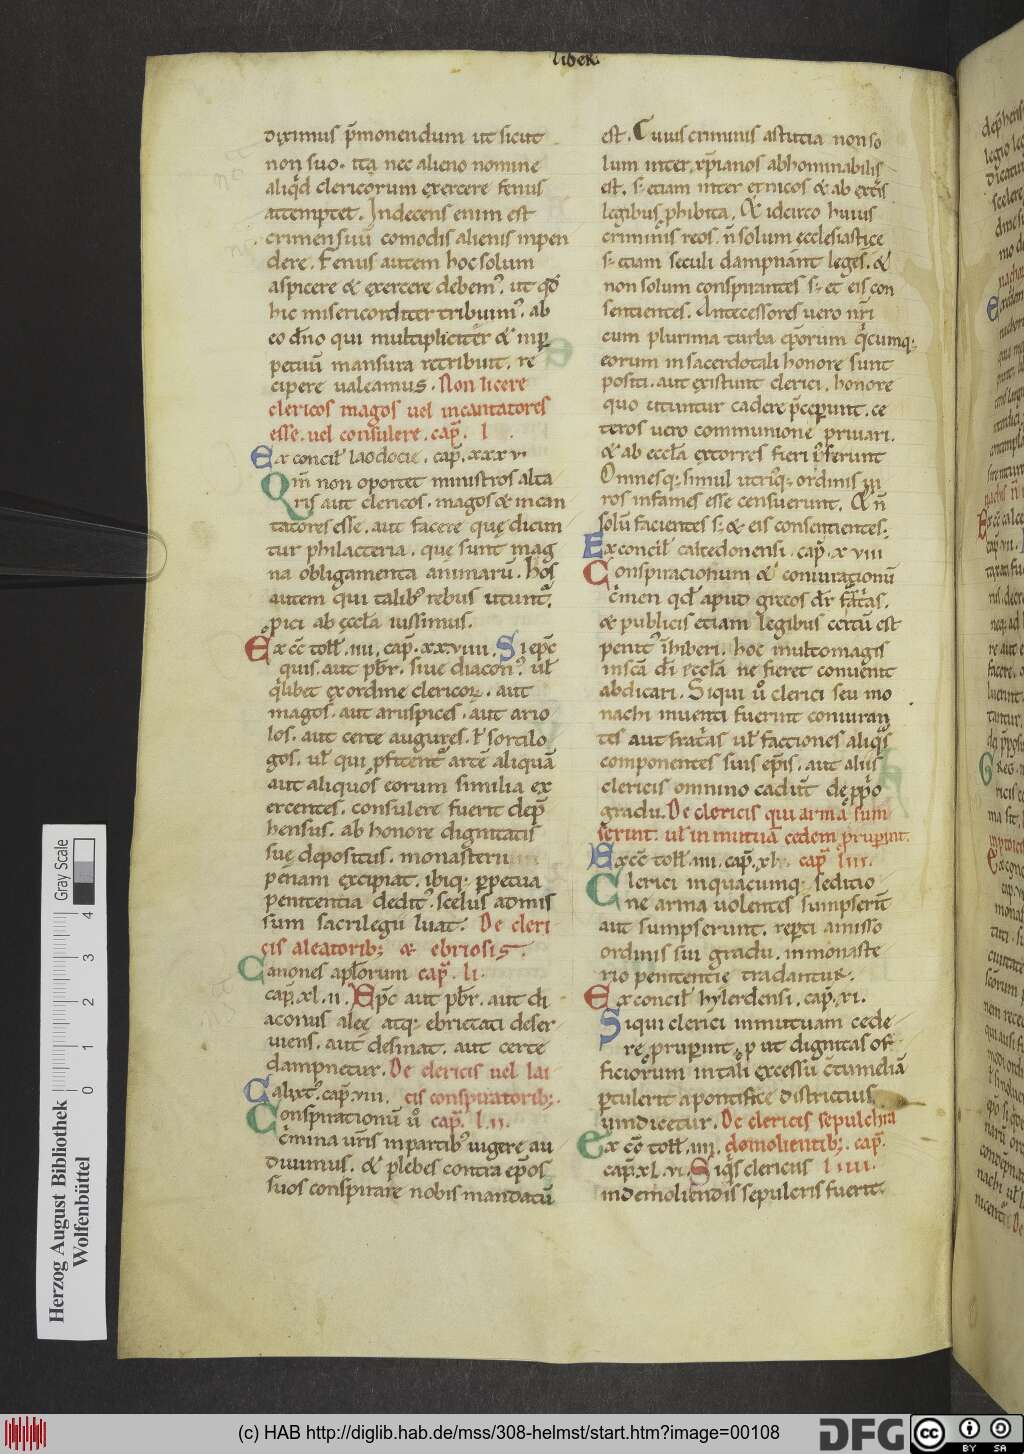 liber.
diximus p̄monendum ut sicut
non suo. ita nec alieno nomine
aliq̇d clericorum exercere fenus
attemptet. Indecens enim est
crimen suū comodis alienis inpen
dere. Fenus autem hoc solum
aspicere & exercere debem᷒. ut qđ
hic misericorditer tribuim᷒. ab
eo dn̄o qui multipliciter & inp̱
petuū mansura retribuit. re
cipere ualeamus. Non licere
clericos magos uel incantatores
esse. uel consulere. cap̄. l.
Ex concil̄ laodocie. cap̄. xxxv.
Qm̄ non oportet ministros alta
ris aut clericos. magos & incan
tatores esse. aut facere quę dicun
tur philacteria. quę sunt mag
na obligamenta animarū. hos
autem qui talib᷒ rebus utunt᷑.
p̱ici ab eccl̄a iussimus.
Ex cc̄ toll̄. iiii. cap̄. xxviiii. Si ep̄c
quis. aut pb̄r. siue diacon᷒. ul̄
q̇libet ex ordine clericoꝝ. aut
magos. aut aruspices. aut ario
los. aut certe augures. ł sortilo
gos. ul̄ qui p̱fitent᷑ artē aliquā
aut aliquos eorum similia ex
ercentes. consulere fuerit dep̄
hensus. ab honore dignitatis
suę depositus. monasterii
pęnam excipiat. ibiq; p̱petua
penitentia dedit. scelus admis
sum sacrilegii luat. De cleri
cis aleatorib; & ebriosis.
Canones apl̄orum cap̄. li.
cap̄. xl.ii. Ep̄c aut pb̄r. aut di
aconus aleę atq; ebrietati deser
uiens. aut desinat. aut certe
dampnetur. De clericis uel lai
Calixt᷒. cap̄. viii. cis conspiratorib;.
Conspirationū u̇o cap̄. l.ii.
c̄mina ur̄is in partib᷒ uigere au
diuimus. & plebes contra ep̄os
suos conspirare nobis mandatū
est. Cuius criminis astutia non so
lum inter xp̄ianos abhominabilis
est. s; etiam inter etnicos & ab ext̄is
legibus p̱hibita. Et idcirco huius
criminis reos. n̄ solum ęcclesiasticę
s; etiam seculi dampnant leges. &
non solum conspirantes s; et eis con
sentientes. Antecessores uero nr̄i
cum plurima turba ep̄orum q̇cumq;
eorum in sacerdotali honore sunt
positi. aut existunt clerici. honore
quo utuntur cadere p̄ceperunt. ce
teros uero communione priuari.
& ab eccl̄a extorres fieri iusserunt
Omnesq; simul utriusq; ordinis ui
ros infames esse censuerunt. Et n̄
solū facientes s; & eis consentientes.
Ex concil̄ calcedonensi. cap̄. xviii
Conspiracionum & coniurationū
c̄men qđ apud grecos dr̄ frat̄as.
& publicis etiam legibus ecitū est
penit᷒ inhiberi. hoc multo magis
in sca᷒ di᷒ eccl̄a ne fieret conuenit
abdicari. Si qui u̇o clerici seu mo
nachi inuenti fuerint coniuran
tes aut frat̄as ul̄ factiones aliq̄s
componentes suis ep̄is. aut aliis
clericis omnino cadūt de p̱p̱o
gradu. De clericis qui arma sum
serint. ul̄ in mutuā cedem p̱rup̱int.
Ex cc̄ toll̄. iiii. cap̄. xlv. cap̄. liii.
Clerici in quacumq; seditio
ne arma uolentes sumpserīt
aut sumpserunt. rep̱ti amisso
ordinis sui gradu. in monaste
rio penitentię tradantur.
Ex concil̄ hylerdensi. cap̄. xi.
Si qui clerici in mutuam cede
re p̱rup̱int. p̱ ut dignitas of
ficiorum in tali excessu c̄tumeliā
p̱tulerit a pontifice districtius
uindicetur. De clericis sepulchra
Ex cc̄ toll̄. iiii. domolientib;. cap̄.
cap̄. xl.vi. Siq̇s clericus liiii.
in demoliendis sepulcris fuerit.
Herzog August Bibliothek
Wolfenbüttel
0 1 2 3 4
Gray Scale
(c) HAB http://diglib.hab.de/mss/308-helmst/start.htm?image=00108
DFG
cc
BY SA